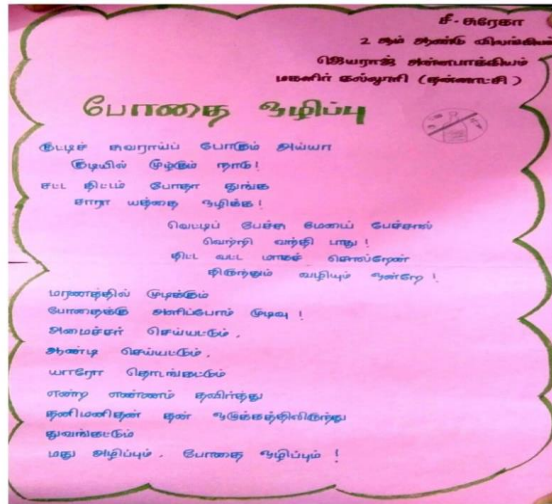 சீ. சுரேகா
2 ஆம் ஆண்டு விலங்கியல்
ஜெயராஜ் அன்னபாக்கியம்
மகளிர் கல்லூரி (தன்னாட்சி)
போதை ஒழிப்பு
குட்டிச் சுவராய்ப் போகும் அய்யா
குடியில் மூழ்கும் நாடு!
சட்ட திட்டம் போதா துங்க
சாரா யத்தை ஒழிக்க!
வெட்டிப் பேச்சு மேடைப் பேச்சால்
வெற்றி வந்தி பாது!
திட்ட வட்ட மாகச் சொல்றேன்
திருந்தும் வழியும் ஒன்றே!
மரணத்தில் முடிக்கும்
போதைக்கு அளிப்போம் முடிவு!
அமைச்சர் செய்யட்டும்,
ஆண்டி செய்யட்டும்,
யாரோ தொடங்கட்டும்
என்ற எண்ணம் தவிர்த்து
தனிமனிதன் தன் ஒடுக்கத்திலிருந்து
துவங்கட்டும்
மது அழிப்பும், போதை ஒழிப்பும்!